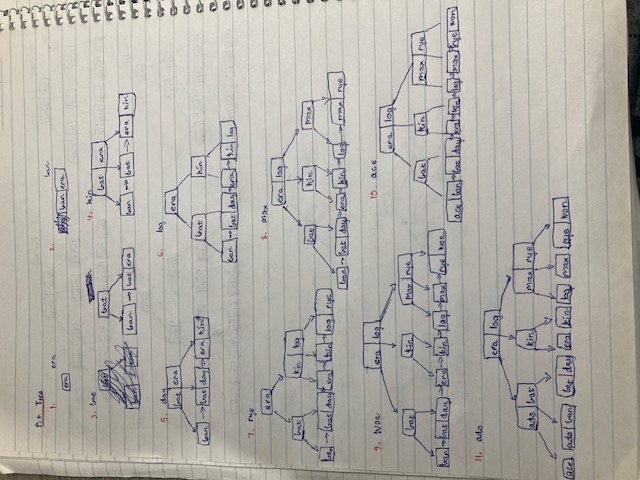 B+ Tree
1. era
era
2. ban
ban era
3. bat
bat
ban bat era
4. kin
bat era
ban bat era kin
5. day
bat era
ban bat day era kin
6. log
era
bat kin
ban bat day era kin log
7. rye
era
bat kin log
ban bat day era kin log rye
8. max
era log
bat kin max
ban bat day era kin log max rye
9. won
era log
bat kin max rye
ban bat day era kin log max rye won
10. ace
era log
bat kin max rye
ace ban bat day era kin log max rye won
11. ado
era log
ado bat kin max rye
ace ado ban bat day era kin log max rye won